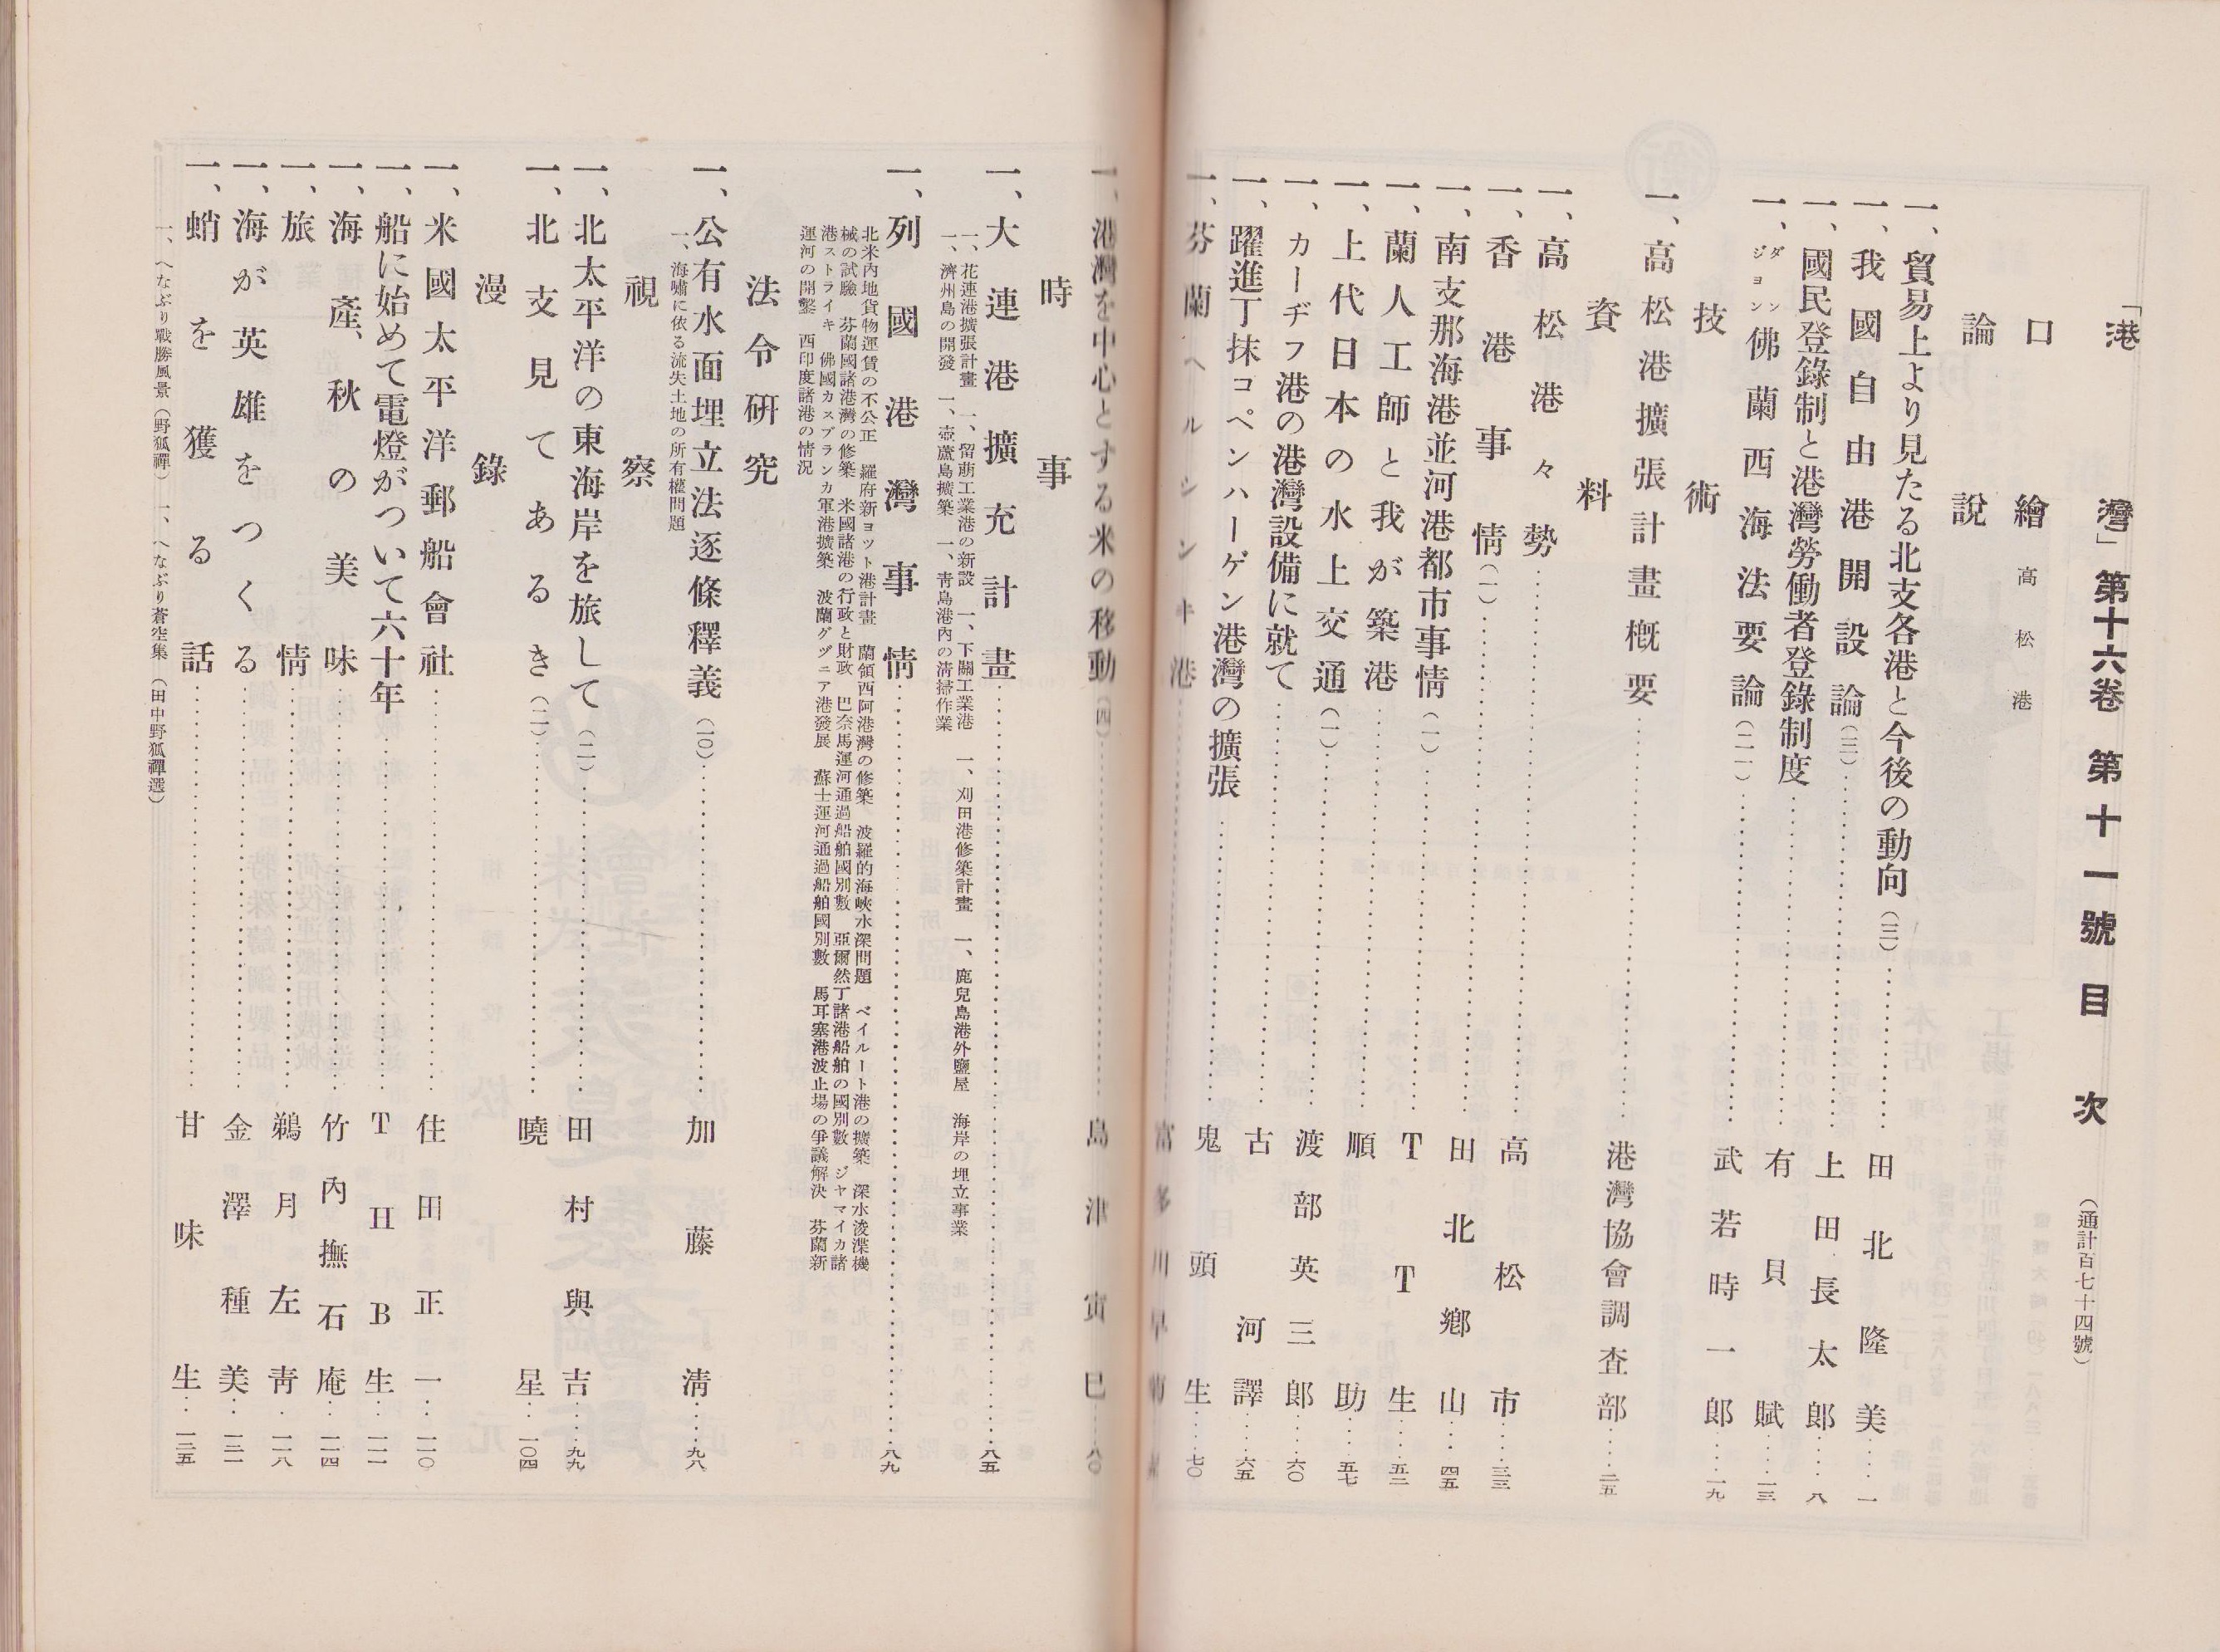 「港灣」第十六卷 第十一號 目次 (通計百七十四號)
口繪
高松港
論說
一、貿易上より見たる北支各港と今後の動向(三)……田北隆美……一
一、我國自由港開設論(三)……上田長太郎……八
一、國民登錄制と港灣勞働者登錄制度……有貝賦……一三
一、ダンジョン佛蘭西海法要論(二一)……武若時一郎……一九
技術
一、高松港擴張計畫槪要……港灣協會調査部……二五
資料
一、高松港々勢……高松市……三三
一、香港事情(一)
一、南支那海港並河港都市事情(一)……田北鄕山……四五
一、蘭人工師と我が築港……TT生……五二
一、上代日本の水上交通(一)……順助……五七
一、カーヂフ港の港灣設備に就て……渡部英三郞……六〇
一、躍進丁抹コペンハーゲン港灣の擴張……古河譯……六五
一、芬蘭ヘルシンキ港……鬼頭生……七〇
一、港灣を中心とする米の移動(四)……島津寅巳……八〇
時事
一、大連港擴充計畫……八五
一、花連港擴張計畫 一、留萠工業港の新設 一、下關工業港 一、刈田港修築計畫 一、鹿兒島港外鹽屋 海岸の埋立事業
一、濟州島の開發 一、壺蘆島擴築 一、靑島港內の淸掃作業
一、列國港灣事情……八九
北米內地貨物運賃の不公正 羅府新ヨット港計畫 蘭領西阿港灣の修築 波羅的海峽水深問題 ベイルート港の擴築 深水浚渫機
械の試驗 芬蘭國諸港灣の修築 米國諸港の行政と財政 巴奈馬運河通過船舶國別數 亞爾然丁諸港船舶の國別數 ジャマイカ諸
港ストライキ 佛國カスブランカ軍港擴築 波蘭グヅニア港發展 蘇士運河通過船舶國別數 馬耳塞港波止場の爭議解決 芬蘭新
運河の開鑿 西印度諸港の情況
法令硏究
一、公有水面埋立法逐條釋義(一〇)……加藤淸……九八
一、海嘯に依る流失土地の所有權問題
視察
一、北太平洋の東海岸を旅して(二)……田村與吉……九九
一、北支見てあるき(二)……曉星……一〇四
漫錄
一、米國太平洋郵船會社……住田正一……一一〇
一、船に始めて電燈がついて六十年……THB生……一一一
一、海產、秋の美味……竹內撫石庵……一一四
一、旅情……鵜月左靑……一一八
一、海が英雄をつくる……金澤種美……一二一
一、蛸を獲る話……甘味生……一二五
一、へなぶり戰勝風景(野狐禪) 一、へなぶり蒼空集(田中野狐禪選)